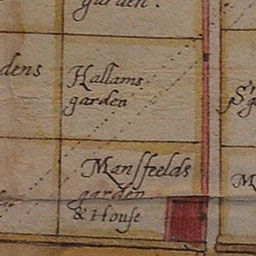 garden.
dens
Hallams
garden
Mansfeelds
garden
& House